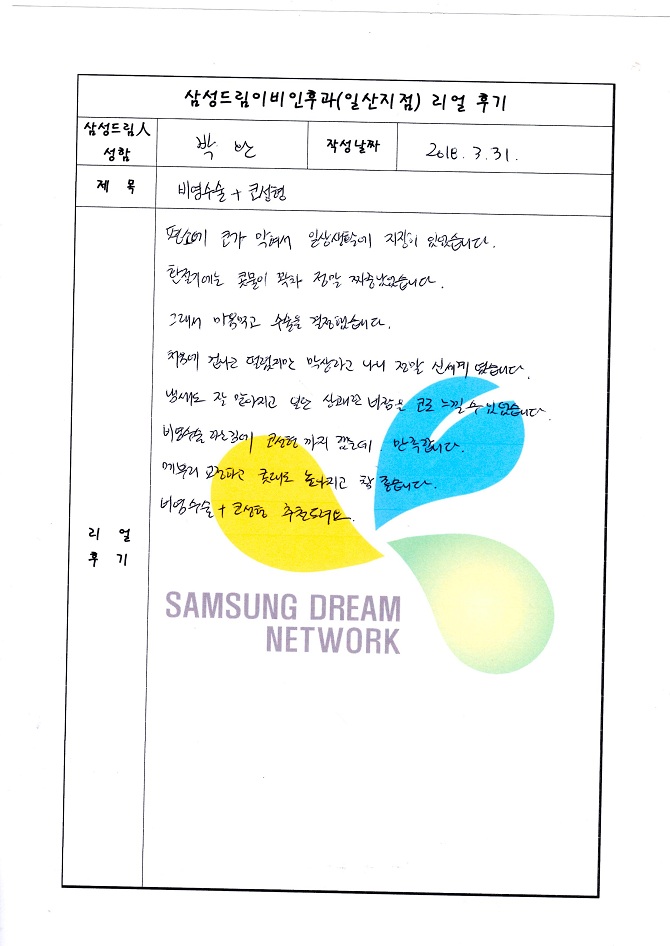 삼성드림이비인후과(일산지점) 리얼 후기
삼성드림人 성함
박
작성날짜
2018. 3. 31.
제 목
비염수술 + 코성형
평소에 코가 막혀서 일상생활에 지장이 있었습니다.
환절기에는 콧물이 꽉차 정말 짜증났었습니다.
그래서 마음먹고 수술을 결정했습니다.
처음에 겁나고 떨렸지만 막상하고 나니 정말 신세계 였습니다.
냄새도 잘 맡아지고 일단 상쾌한 바람을 코로 느낄 수 있었습니다.
비염수술 하는김에 코성형 까지 했는데 만족합니다.
매부리 교정하고 콧대도 높아지고 참 좋습니다.
비염수술 + 코성형 추천드려요.
리 얼
후 기
SAMSUNG DREAM
NETWORK